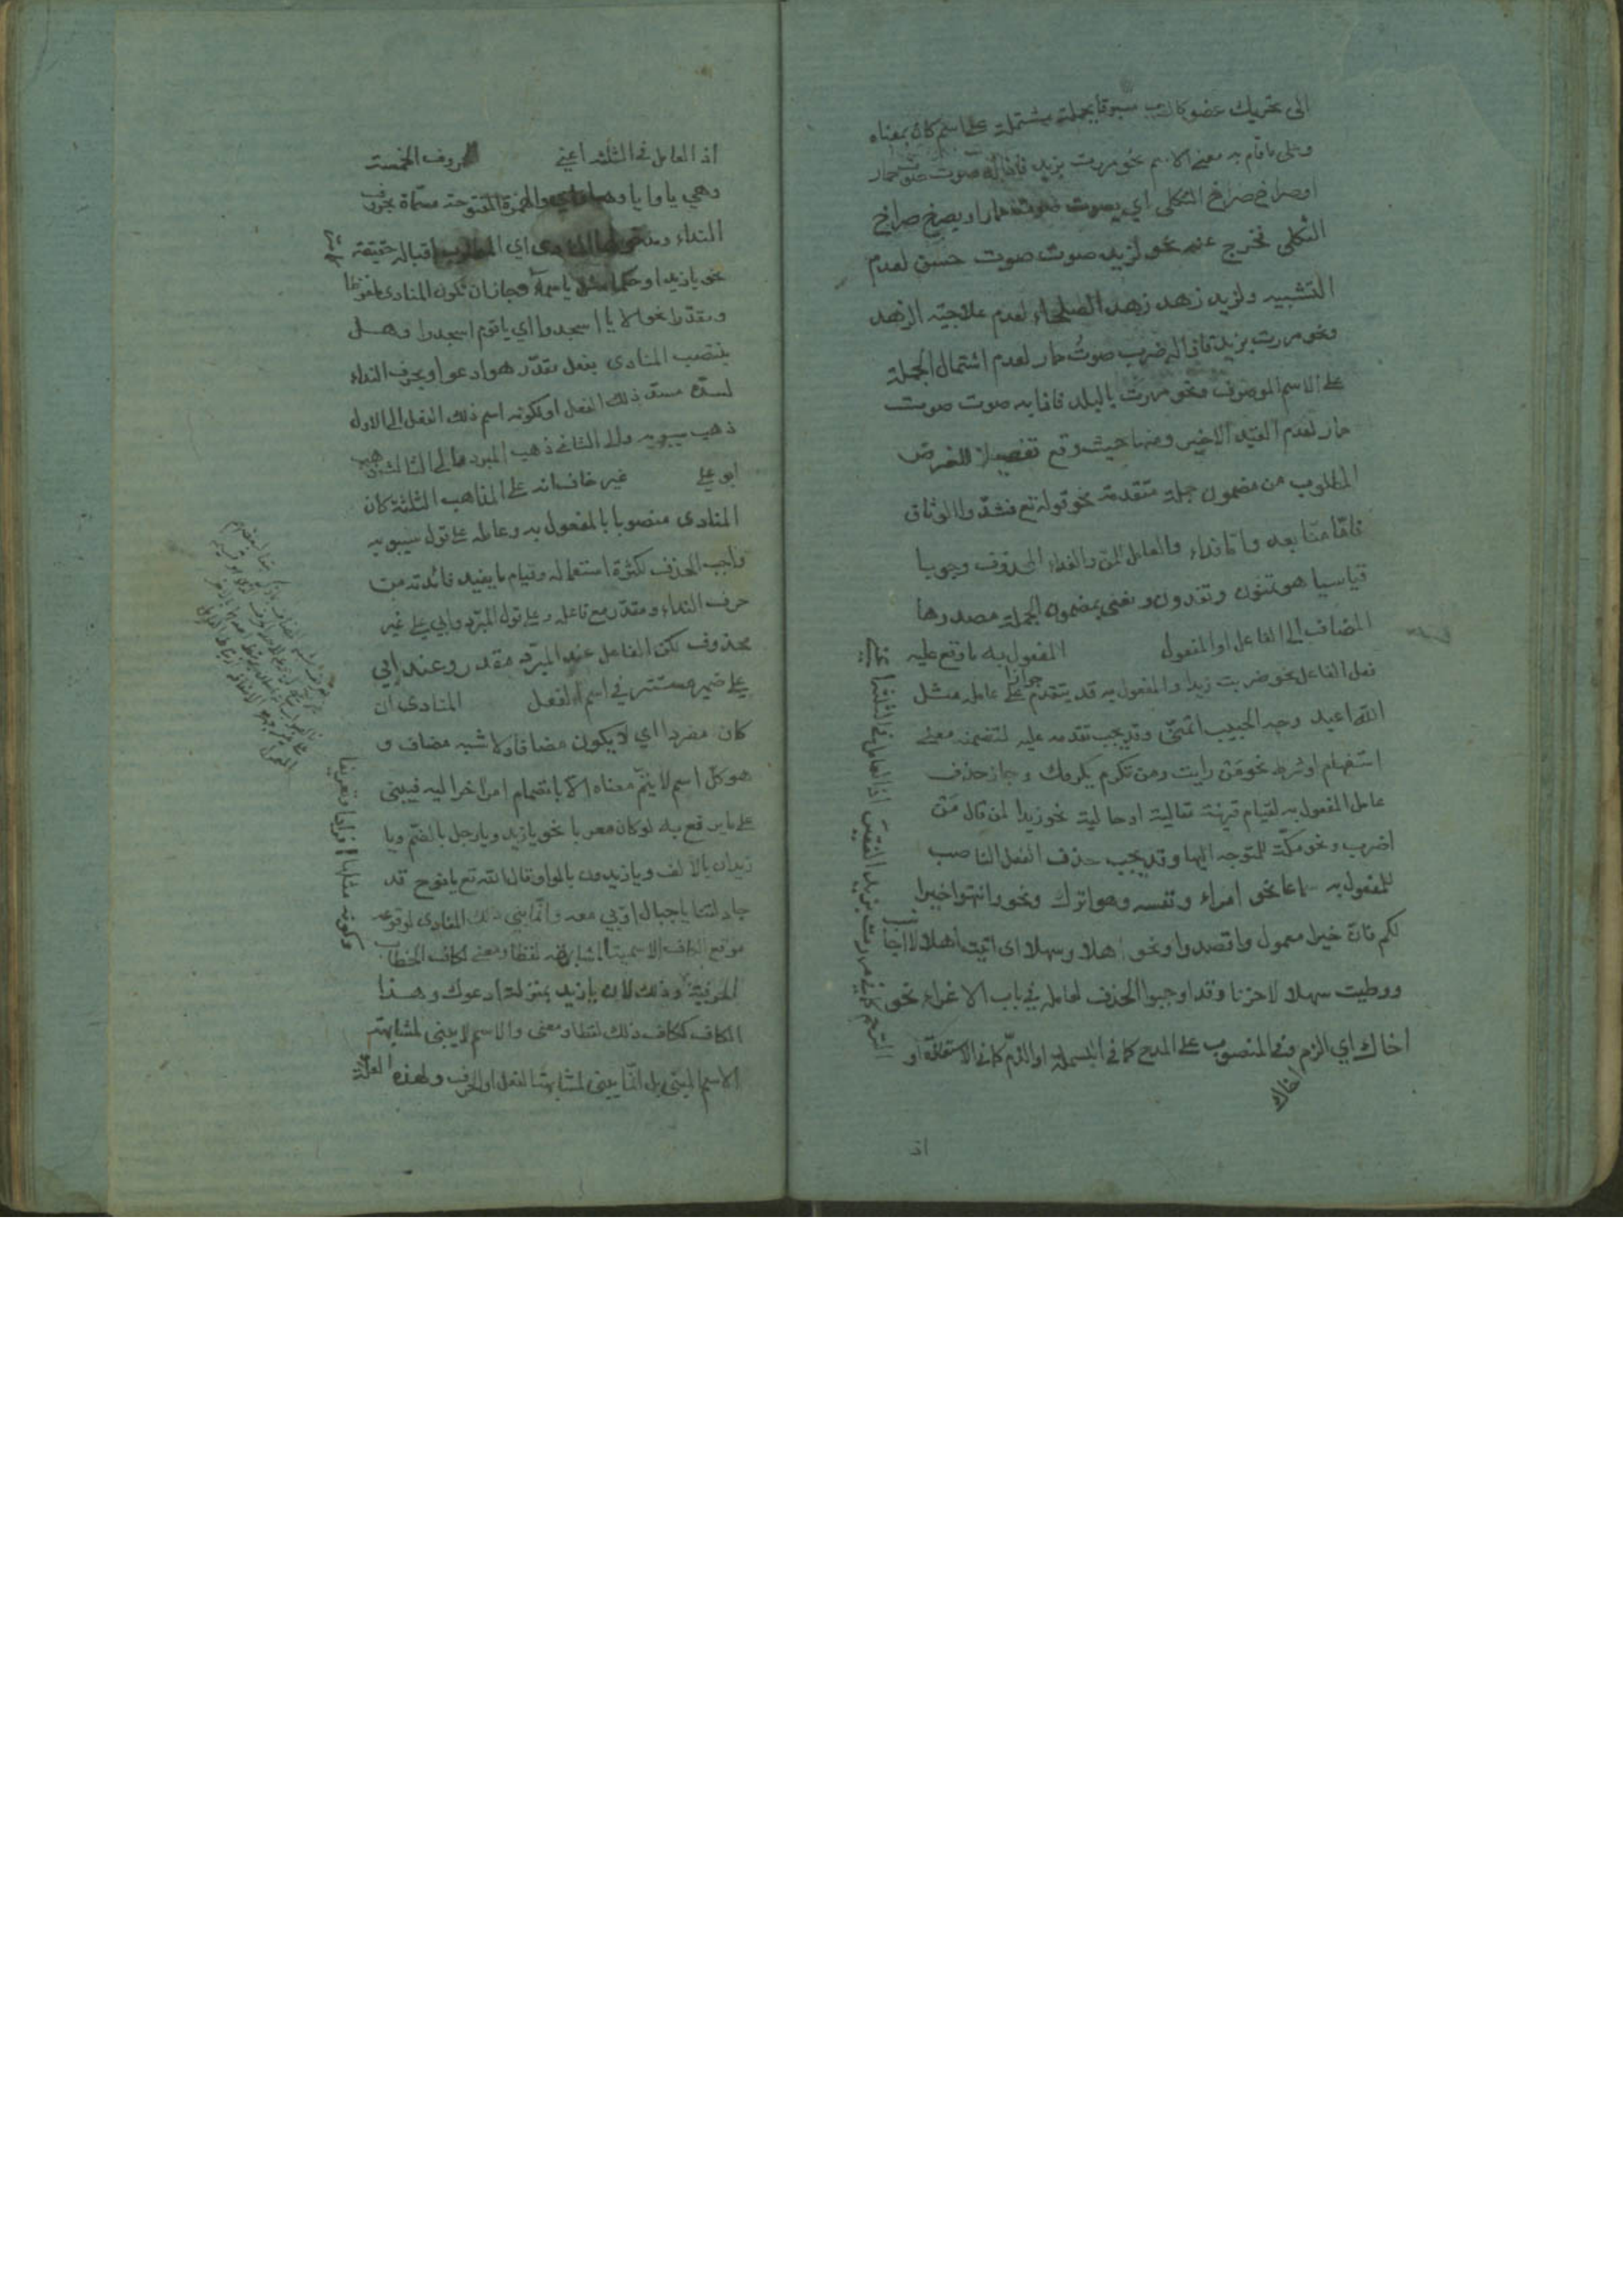 الى تحريك عضو كالضرب مسبوقا بجملة مشتملة على اسم كائن بمعناه
وعلى ما قام به معنى الاسم نحو مررت بزيد فاذا له صوت صوت حمار
او صراخ صراخ الثكلى اي يصوت صوت حمار او يصرخ صراخ
الثكلى فخرج عنه نحو لزيد صوت صوت حسن لعدم
التشبيه ولزيد زهد زهد الصلحاء لعدم علاجية الزهد
ونحو مررت بزيد فاذا له ضرب صوت حمار لعدم اشتمال الجملة
على الاسم الموصوف ونحو مررت بالبلد فاذا به صوت صوت
حمار لعدم القيد الاخير ومنها حيث وقع تفصيلا للغرض
المطلوب من مضمون جملة متقدمة نحو قوله تع فشدوا الوثاق
فاما منا بعد واما فداء والعامل المن والفداء المحذوف وجوبا
قياسيا هو تمنون وتفدون ونعني بمضمون الجملة مصدرها
المضاف الى الفاعل او المفعول المفعول به ما وقع عليه
فعل الفاعل نحو ضربت زيدا والمفعول به قد يتقدم جوازا على عامله مثل
الله اعبد ووجه الحبيب اتمنى وقد يجب تقدمه عليه لتضمنه معنى
استفهام او شرط نحو من رايت ومن تكرم يكرمك وجاز حذف
عامل المفعول به لقيام قرينة مقالية او حالية نحو زيدا لمن قال من
اضرب ونحو مكة للمتوجه اليها وقد يجب حذف الفعل الناصب
للمفعول به سماعا نحو امراء ونفسه وهو اترك ونحو وانتهوا خيرا
لكم فان خيرا معمول واقصدوا ونحو اهلا وسهلا اى اتيت اهلا لا اجانب
ووطيت سهلا لا حزنا وقد اوجبوا الحذف لعامله في باب الاغراء نحو
اخاك اي الزم وفي المنصوب على المدح كما في البسملة او الذم كما في الاستعاذة او
اخاك
الترحم كما في مررت بزيد الفقير اذ العامل في الثلثة
اذ
اذ العامل في الثلثة اعني الحروف الخمسة
وهي يا وايا وهيا واي والهمزة المفتوحة مسماة بحروف
النداء اي المطلوب اقباله حقيقة
نحو يا زيد او حكما مثل يا سماء وجاز ان تكون المنادى ملفوظا
ومقدرا نحو الا يا اسجدوا اي يا قوم اسجدوا وهل
ينتصب المنادى بفعل مقدر هو ادعو او بحرف النداء
لسده مسد ذلك الفعل او لكونه اسم ذلك الفعل الى الاول
ذهب سيبويه والى الثاني ذهب المبرد والى الثالث ذهب
ابو علي غير خاف انه على المذاهب الثلثة كان
المنادى منصوبا بالمفعول به وعامله على قول سيبويه
واجب الحذف لكثرة استعماله وقيام ما يفيد فائدته من
حرف النداء ومقدر مع فاعله وعلى قول المبرد وابي علي غير
محذوف لكن الفاعل عند المبرد مقدر وعند ابي
علي ضمير مستتر في اسم الفعل المنادى ان
كان مفردا اي لا يكون مضافا ولا شبه مضاف و
هو كل اسم لا يتم معناه الا بانضمام امر اخر اليه فيبنى
على ما يرفع به لو كان معربا نحو يا زيد ويا رجل بالضم ويا
زيدان بالالف ويا زيدون بالواو قال الله تع يا نوح قد
جادلتنا يا جبال اوبي معه وانما بني ذلك المنادى لوقوعه
موقع الكاف الاسمية المشابهة لفظا ومعنى لكاف الخطاب
الحرفية وذلك لان يا زيد بمنزلة ادعوك وهذا
الكاف ككاف ذلك لفظا ومعنى والاسم لا يبنى لمشابهته
الاسم المبني بل انما يبنى لمشابهته الفعل او الحرف ولهذه العلة
وكونه مثلها افرادا وتعريفا